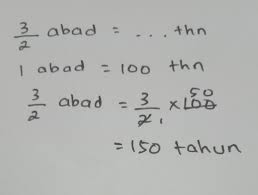 3/2 abad = ... thn
1 abad = 100 thn
3/2 abad = 3/2 1 x 100 50
= 150 tahun